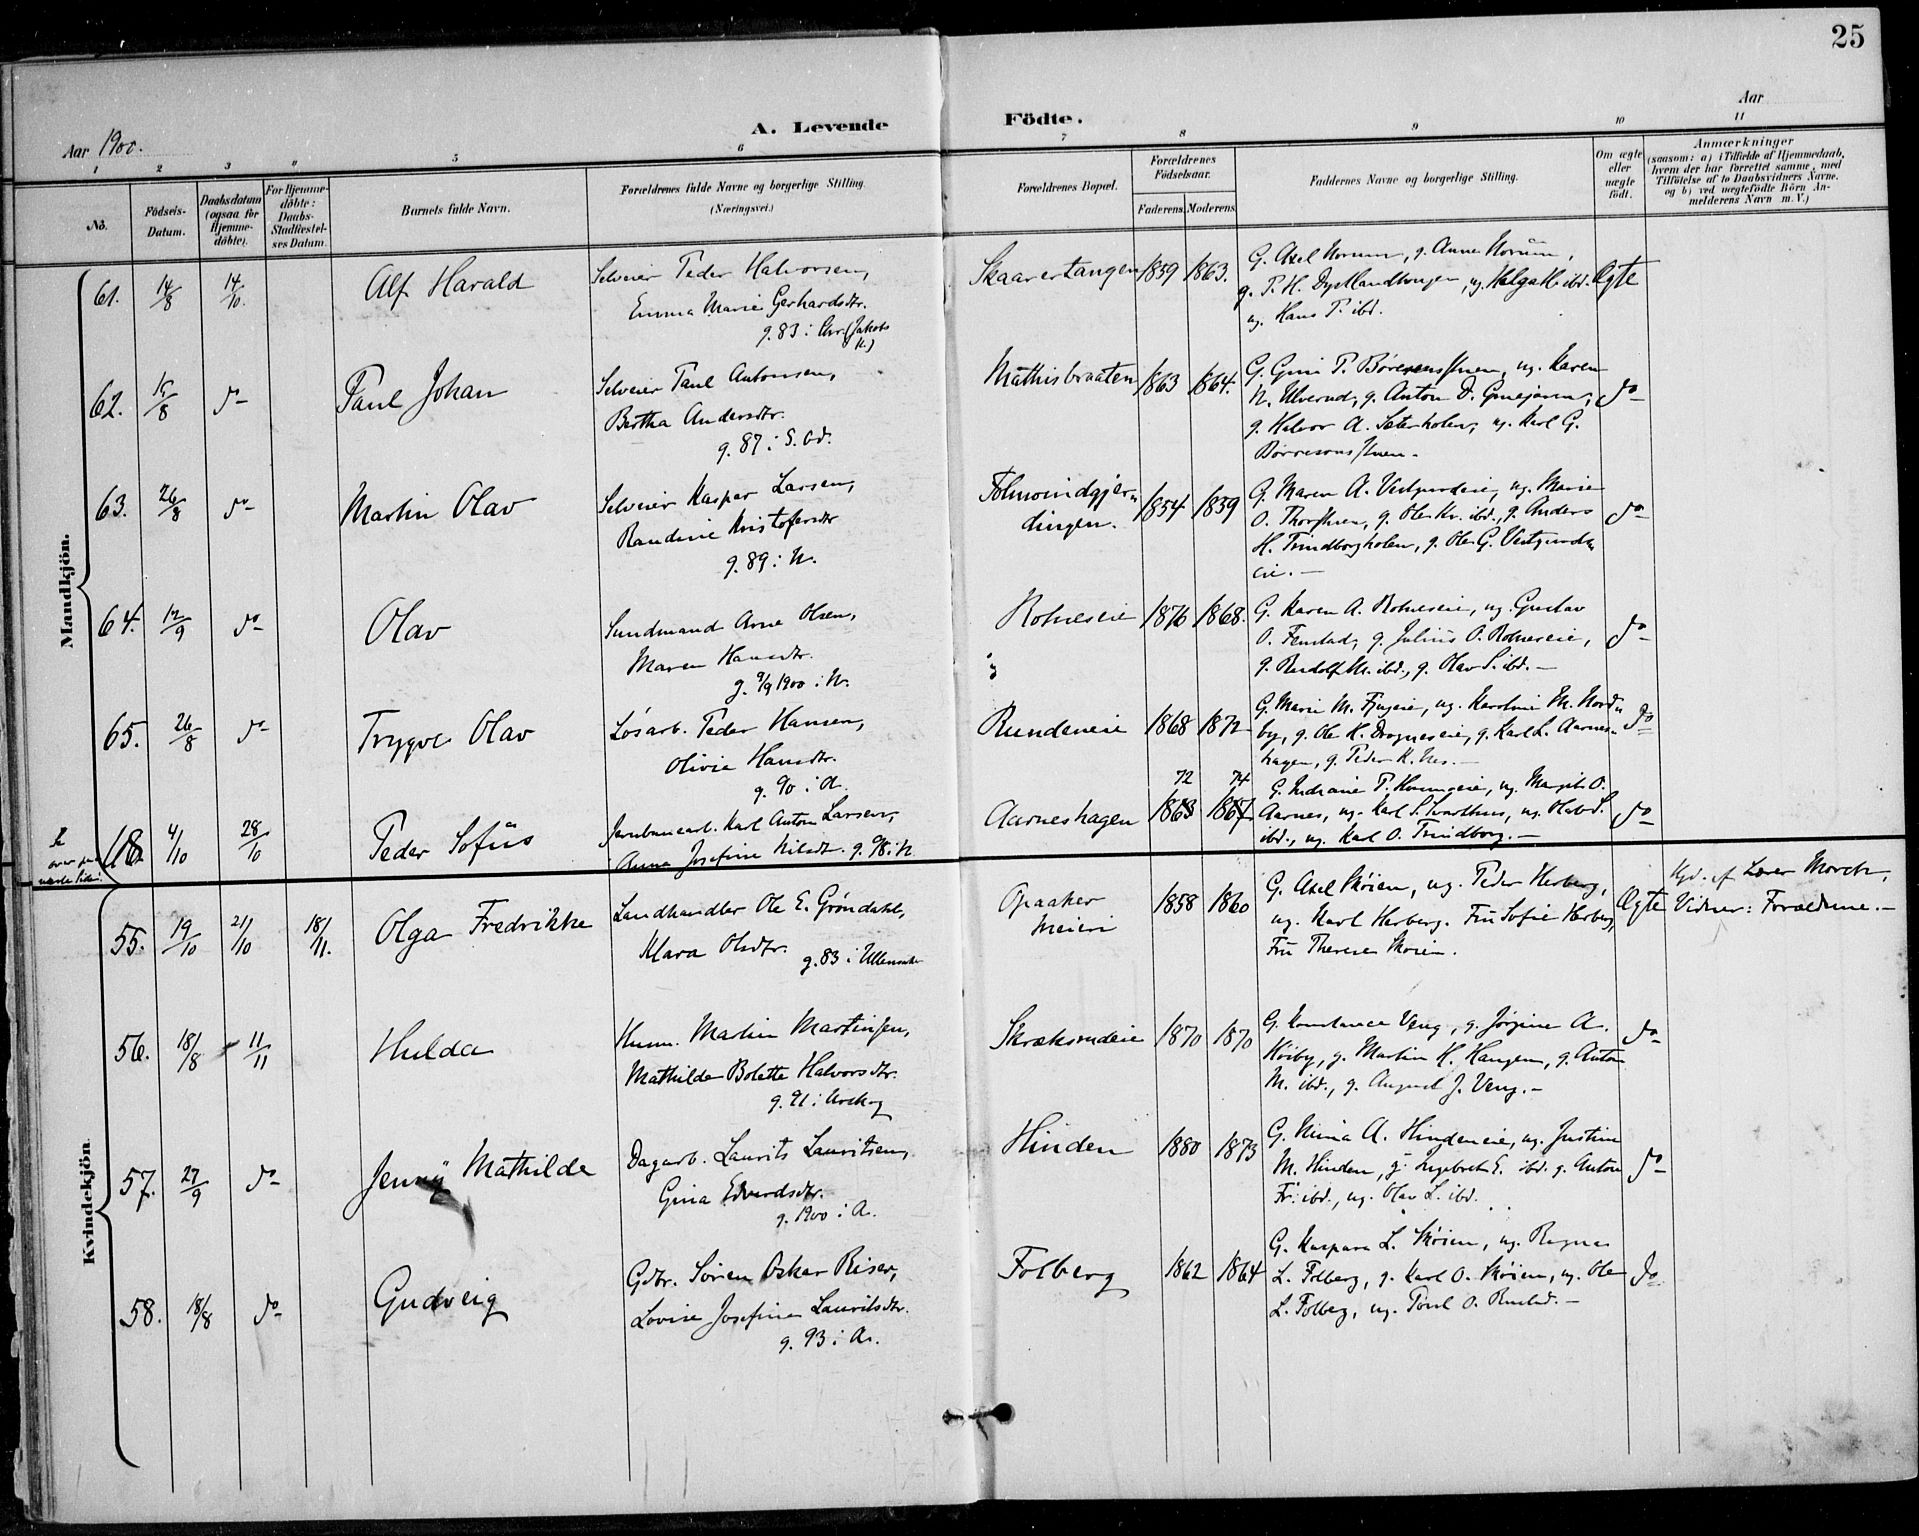 25
Aar 1900.
A. Levende
Födte.
Aar
1 2 3 4 5 6 7 8 9 10 11
No.
Födsels-
Datum.
Daabsdatum
(ogsaa for
Hjemme-
döbte).
For Hjemme-
döbte:
Daabs-
Stadfæstel-
ses Datum.
Barnets fulde Navn.
Forældrenes fulde Navne og borgerlige Stilling.
(Næringsvei.)
Forældrenes Bopæl.
Forældrenes
Födselsaar.
Faderens. Moderens.
Faddernes Navne og borgerlige Stilling.
Om ægte
eller
uægte
födt.
Anmærkninger
(saasom: a) i Tilfælde af Hjemmedaab,
hvem der har forrettet samme, med
Tilföielse af to Daabsvidners Navne,
og b) ved uægtefödte Börn An-
melderens Navn m. V.)
Mandkjön.
61. 14/8 14/10. Alf Harald
Selveier Peder Halvorsen,
Emma Marie Gerhardsdtr.
g. 83 i Chr. (Jakobs
K.)
Skaarertangen 1859 1863.
G. Axel Norum, g. Anna Norum,
ug. Helga H. ibd.
ug. Hans P. ibd.
Ægte
62. 15/8 do Paul Johan
Selveier Paul Antonsen,
Bertha Andersdtr.
g. 87 i S. Od.
Mathisbraaten 1863 1864.
ug. Karen
N. Ulverud, g. Anton D.
g. Halvor A. Seterholen, ug. Karl G.
do
63. 26/8 do Martin Olav
Selveier Kaspar Larsen,
Randine Kristofersdtr
g. 89 i N.
dingen. 1854 1859
G. Maren A. ug. Marie
O. g. Ole Kr. ibd., g. Anders
H. Trindborgholen, g. Ole G.
eie.
do
64. 12/9 do Olav
Sundmand Arne Olsen,
Maren Hansdtr.
g. 9/9 1900 i N.
Rolneseie 1876 1868.
G. Karen A. Rolneseie, ug. Gustav
O. Fenstad, g. Julius O. Rolneseie,
g. Rudolf M. ibd., g. Olav S. ibd.
do
65. 26/8 do Trygve Olav
Løsarb. Peder Hansen,
Olivia Hansdtr.
g. 90 i A.
Rundeneie 1868 1872
G. Marie M. ug. Karoline M. Nord-
by, g. Ole K. Dragneseie, g. Karl L. Aarnes-
hagen, g. Peder K. Nes.
do
Se
næste Side.
4/10 28/10 Peder Sofus
Jernbanearb. Karl Anton Larsen,
Anna Josefine Nilsdtr. g. 98 i N
Aarneshagen 72 74
1863 1867
ug. Margit O.
Aarnes, ug. Karl S. ug. Olab S.
ibd., ug. Karl O. Trindborg.
do
Kvindekjön
55. 19/10 21/10 18/11. Olga Fredrikke
Landhandler Ole E. Grøndahl,
Klara Olsdtr.
g. 83 i Ullensaker
Opaaker
Meieri 1858 1860
G. Axel Skøien, ug. Peder Herberg,
ug. Karl Herberg. Fru Sofie Herberg,
Fru Therese Skøien.
Ægte
Hjd. af Lærer Morch,
Vidner: Forældrene.
56. 18/8 11/11 Hulda
Husm. Martin Martinsen,
Mathilde Bolette Halvorsdtr.
g. 91 i Urskog
Skræksrudeie 1870 1870
G. Konstance Veng, g. Jørgine A.
Kørby, g. Martin H. Haugen, g. Anton
M. ibd., g. August J. Veng.
do
57. 27/9 do Jenny Mathilde
Dagarb. Laurits Lauritsen,
Gina Edvardsdtr.
g. 1900 i A.
Hinden 1880 1873
G. Mina A. Hindeneie, ug. Justine
M. Hinden, g. Ingebret E. ibd. g. Anton
Fr. ibd., ug. Olav L. ibd.
do
58. 18/8 do Gudveig
Gdbr. Søren Oskar Riser,
Lovise Josefine Lauritsdtr.
g. 93 i A.
Folberg 1862 1864
G. Kaspara L. Skøien, ug. Ragna
L. Folberg, g. Karl O. Skøien, ug. Ole
L. Folberg, ug. Poul O. Rustad.
do